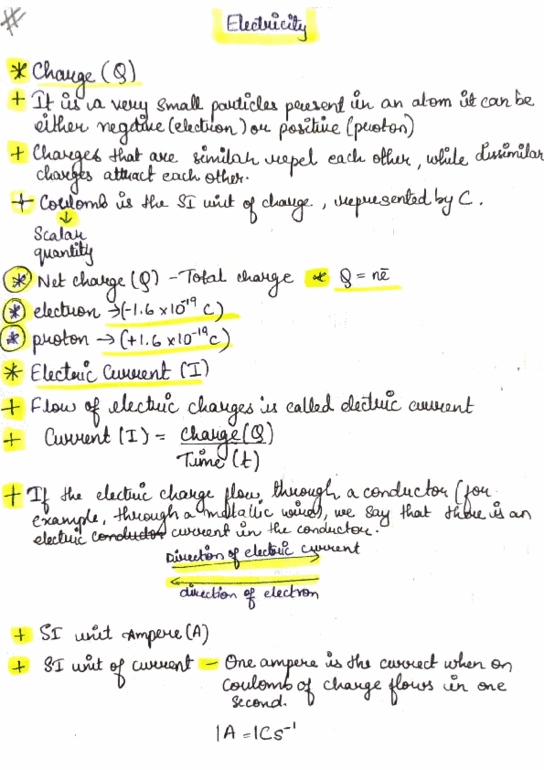 #
Electricity
* Charge (Q)
+ It is a very small particles present in an atom it can be
either negative (electron) or positive (proton)
+ Charges that are similar repel each other, while dissimilar
charges attract each other.
+ Coulomb is the SI unit of charge, represented by C.
↓
Scalar
quantity
* Net charge (Q) - Total charge * Q = nē
* electron → (-1.6 × 10⁻¹⁹ C)
* proton → (+1.6 × 10⁻¹⁹ C)
* Electric Current (I)
+ Flow of electric charges is called electric current
+ Current (I) = charge (Q)
Time (t)
+ If the electric charge flow through a conductor (for
example, through a metallic wire), we say that there is an
electric conductor current in the conductor.
Direction of electric current
direction of electron
+ SI unit Ampere (A)
+ SI unit of current - One ampere is the currect when on
coulomb of charge flows in one
second.
1A = 1Cs⁻¹